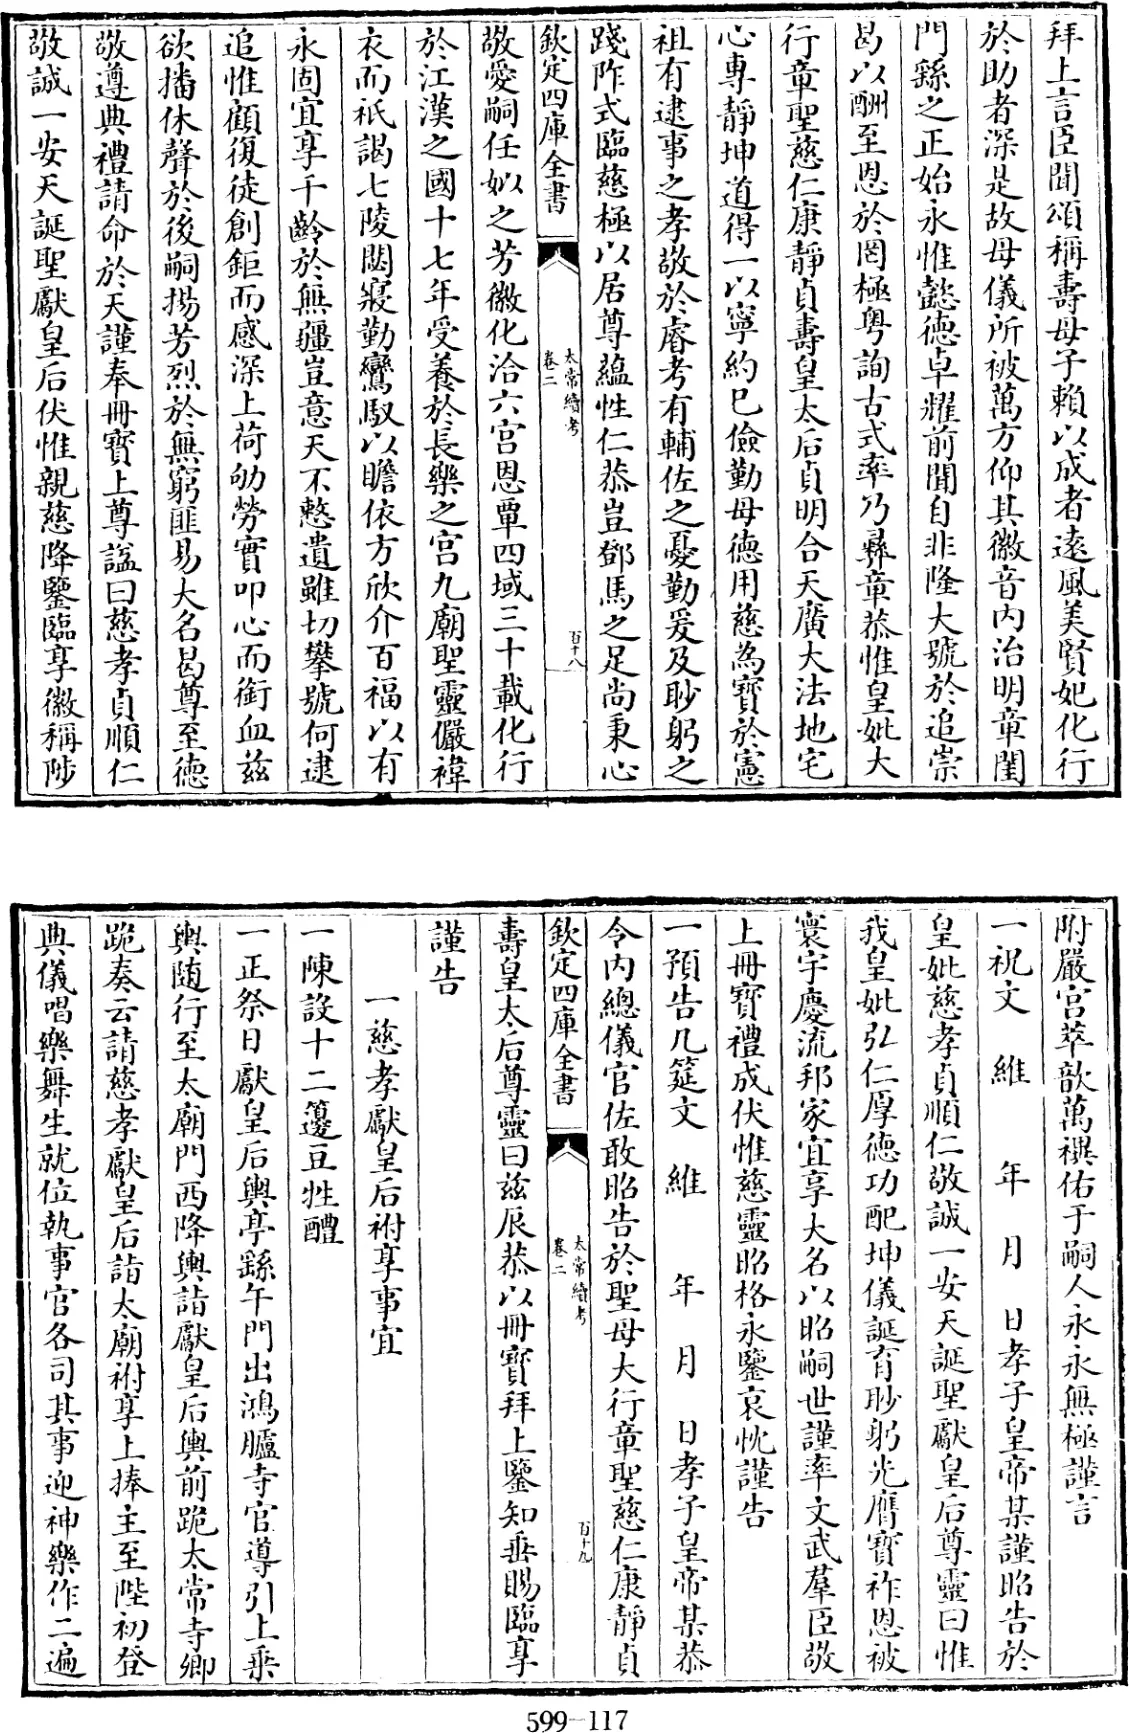 拜上言臣聞頌稱壽母子賴以成者遠風美賢妃化行
於助者深是故母儀所被萬方仰其徽音内治明章閨
門繇之正始永惟懿德卓耀前聞自非隆大號於追崇
曷以酬至恩於罔極粤詢古式率乃彝章恭惟皇妣大
行章聖慈仁康靜貞壽皇太后貞明合天廣大法地宅
心專靜坤道得一以寧約已儉勤母德用慈為寶於憲
祖有逮事之孝敬於睿考有輔佐之憂勤爰及眇躬之
踐阼式臨慈極以居尊藴性仁恭豈鄧馬之足尚秉心
欽定四庫全書
太常續考
卷二
百十八
敬愛嗣任姒之芳徽化洽六宮恩覃四域三十載化行
於江漢之國十七年受養於長樂之宮九廟聖靈儼褘
衣而祇謁七陵閟寢勤鸞馭以瞻依方欣介百福以有
永固宜享千齡於無疆豈意天不憗遺雖切攀號何逮
追惟顧復徒創鉅而感深上荷劬勞實叩心而銜血兹
欲播休聲於後嗣揚芳烈於無窮匪易大名曷尊至德
敬遵典禮請命於天謹奉冊寶上尊諡曰慈孝貞順仁
敬誠一安天誕聖獻皇后伏惟親慈降鑒臨享徽稱陟
附嚴宮萃歆萬禩佑于嗣人永永無極謹言
一祝文 維 年 月 日孝子皇帝某謹昭告於
皇妣慈孝貞順仁敬誠一安天誕聖獻皇后尊靈曰惟
我皇妣弘仁厚德功配坤儀誕育眇躬光膺寶祚恩被
寰宇慶流邦家宜享大名以昭嗣世謹率文武羣臣敬
上冊寶禮成伏惟慈靈昭格永鑒哀忱謹告
一預告几筵文 維 年 月 日孝子皇帝某恭
令内總儀官佐敢昭告於聖母大行章聖慈仁康靜貞
欽定四庫全書
太常續考
卷二
百十九
壽皇太后尊靈曰兹辰恭以冊寶拜上鑒知垂賜臨享
謹告
一慈孝獻皇后祔享事宜
一陳設十二籩豆牲醴
一正祭日獻皇后輿亭繇午門出鴻臚寺官導引上乗
輿隨行至太廟門西降輿詣獻皇后輿前跪太常寺卿
跪奏云請慈孝獻皇后詣太廟祔享上捧主至陛初登
典儀唱樂舞生就位執事官各司其事迎神樂作二遍
599-117